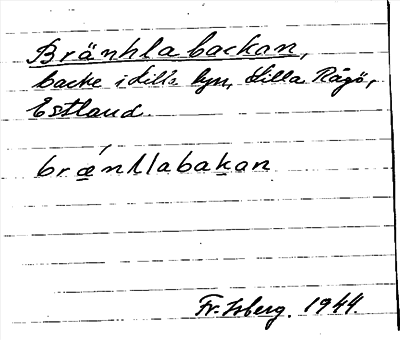 Bränhlabackan,
backe i Lilla byn, Lilla Rågö,
Estland.
brænllabakan
Fr. Isberg. 1944.